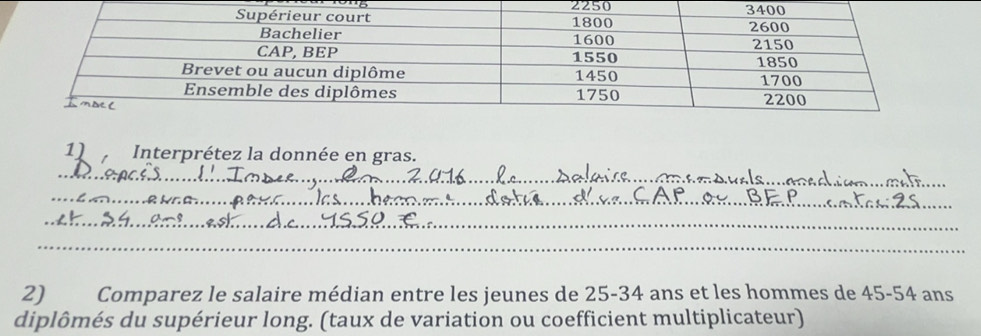 2250 3400
Supérieur court 1800 2600
Bachelier 1600 2150
CAP, BEP 1550 1850
Brevet ou aucun diplôme 1450 1700
Ensemble des diplômes 1750 2200
1) Interprétez la donnée en gras.
D'après l'Insee, en 2016 le salaire mensuels median nets
en euro pour les homme doté d'un CAP ou BEP entre 25
et 34 ans est de 1550 €.
2) Comparez le salaire médian entre les jeunes de 25-34 ans et les hommes de 45-54 ans
diplômés du supérieur long. (taux de variation ou coefficient multiplicateur)